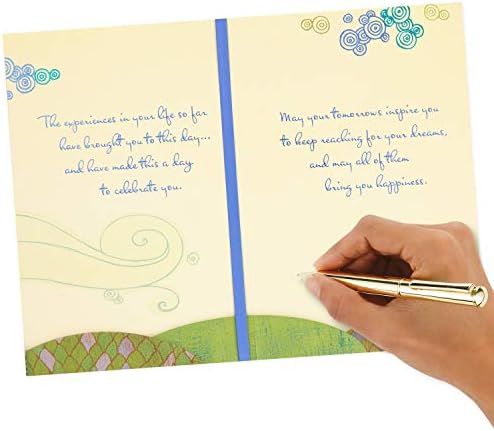 The experiences in your life so far
have brought you to this day...
and have made this a day
to celebrate you.
May your tomorrows inspire you
to keep reaching for your dreams,
and may all of them
bring you happiness.